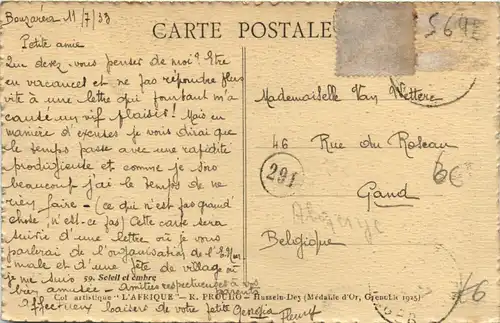 Bouzaréa 11/7/33
CARTE POSTALE
Petite amie
Que devez-vous penser de moi? Etre
en vacances et ne pas répondre plus
vite à une lettre qui pourtant m'a
causé un vif plaisir! Mais en
manière d'excuses je vous dirai que
le temps passe avec une rapidité
prodigieuse et comme je dors
beaucoup j'ai le temps de ne
rien faire - (ce qui n'est pas grand
chose, n'est-ce pas) Cette carte sera
suivie d'une lettre où je vous
parlerai de l'organisation de l'E.
male et d'une fête de village où
je me suis
59. Soleil et ombre
bien amusée - Amitiés respectueuses à
Col artistique "L'AFRIQUE" - R. - Hussein-Dey (Médaille d'Or, Grenoble 1925)
Affectueux baisers de votre petite Georgia
fleurt
Mademoiselle Van Wettere
46 Rue du Roseau
Gand
Belgique
291
5692
6€
€6